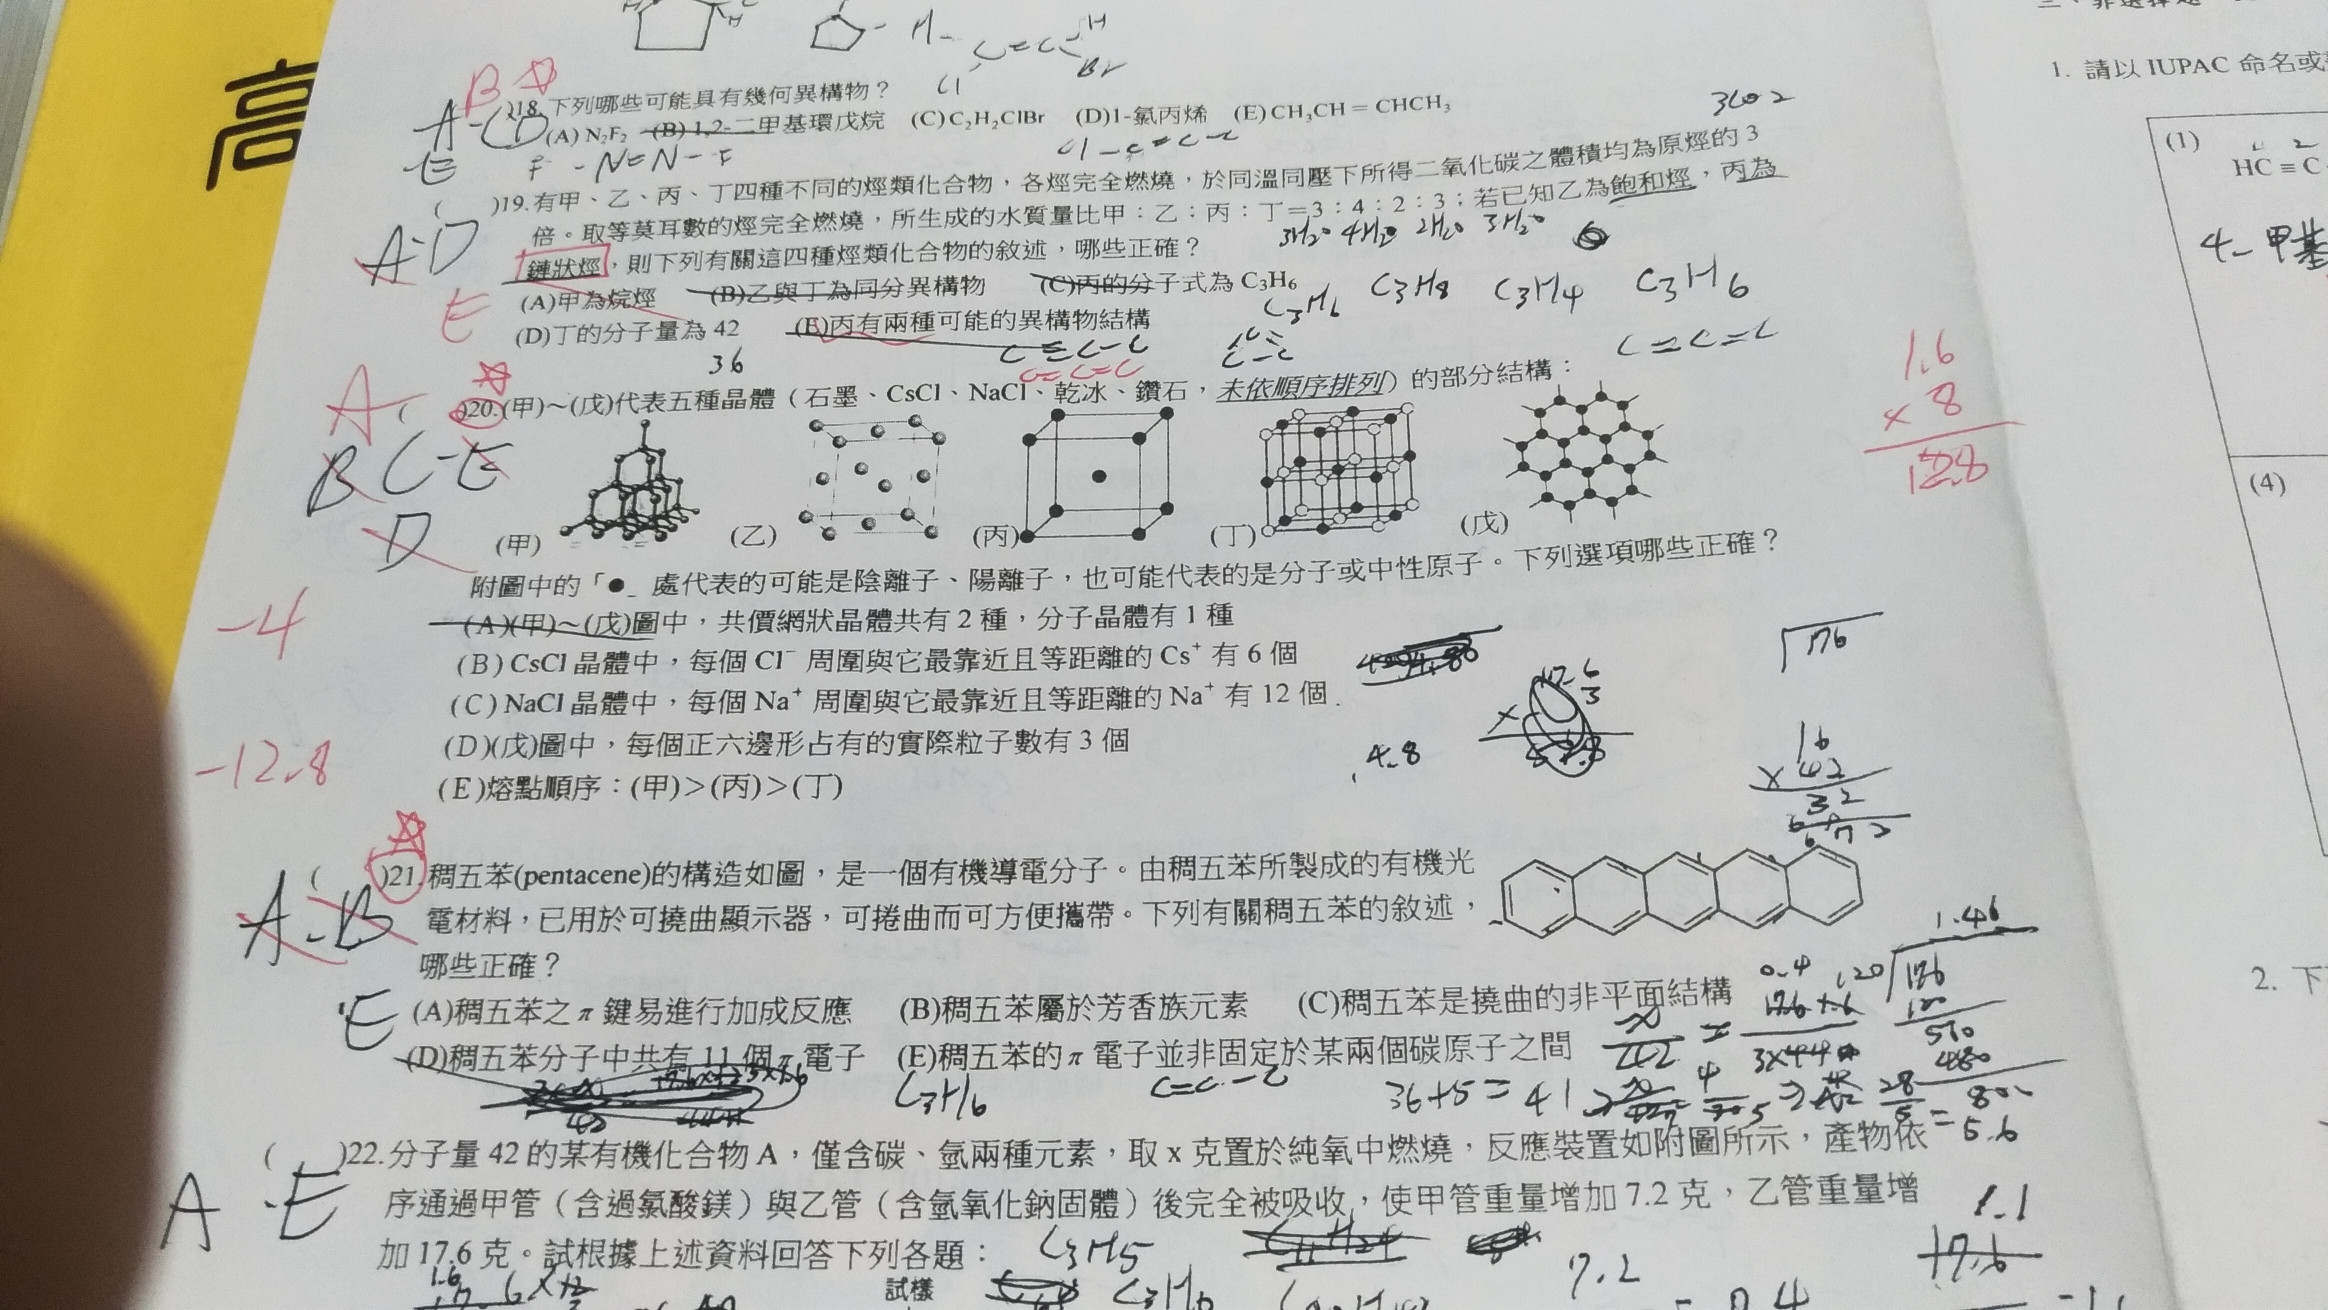 高
三、非選擇題
1. 請以 IUPAC 命名或
(1)
HC ≡ C
4-甲基
(4)
2. 下
H
C=C
H
Cl
Br
B☆
A-CD
E
)18.下列哪些可能具有幾何異構物？
(A) N₂F₂ (B) 1,2-二甲基環戊烷 (C) C₂H₂ClBr (D)1-氯丙烯 (E) CH₃CH = CHCH₃
F-N=N-F
Cl-C=C-C
3CO2
( )19.有甲、乙、丙、丁四種不同的烴類化合物，各烴完全燃燒，於同溫同壓下所得二氧化碳之體積均為原烴的 3
倍。取等莫耳數的烴完全燃燒，所生成的水質量比甲：乙：丙：丁=3：4：2：3；若已知乙為飽和烴，丙為
鏈狀烴，則下列有關這四種烴類化合物的敘述，哪些正確？
3H₂O 4H₂O 2H₂O 3H₂O
A-D
E
(A)甲為烷烴 (B)乙與丁為同分異構物 (C)丙的分子式為 C₃H₆
C₃H₆ C₃H₈ C₃H₄ C₃H₆
(D)丁的分子量為 42 (E)丙有兩種可能的異構物結構
36
C≡C-C
C=C=C
C=C=C
1.6
× 8
12.8
☆
( )20.(甲)～(戊)代表五種晶體（石墨、CsCl、NaCl、乾冰、鑽石，未依順序排列）的部分結構：
A
B C-E
D
(甲) (乙) (丙) (丁) (戊)
附圖中的「●」處代表的可能是陰離子、陽離子，也可能代表的是分子或中性原子。下列選項哪些正確？
(A)(甲)～(戊)圖中，共價網狀晶體共有 2 種，分子晶體有 1 種
(B) CsCl 晶體中，每個 Cl⁻ 周圍與它最靠近且等距離的 Cs⁺ 有 6 個
(C) NaCl 晶體中，每個 Na⁺ 周圍與它最靠近且等距離的 Na⁺ 有 12 個
(D)(戊)圖中，每個正六邊形占有的實際粒子數有 3 個
(E)熔點順序：(甲)＞(丙)＞(丁)
-4
-12.8
176
4.8
16
× 42
32
☆
( )21.稠五苯(pentacene)的構造如圖，是一個有機導電分子。由稠五苯所製成的有機光
電材料，已用於可撓曲顯示器，可捲曲而可方便攜帶。下列有關稠五苯的敘述，
哪些正確？
A-B
E
(A)稠五苯之 π 鍵易進行加成反應 (B)稠五苯屬於芳香族元素 (C)稠五苯是撓曲的非平面結構
(D)稠五苯分子中共有 11 個 π 電子 (E)稠五苯的 π 電子並非固定於某兩個碳原子之間
1.46
120
176
480
0.4
3×44
C₃H₆
C=C-C
36+5=41
=5.6
( )22.分子量 42 的某有機化合物 A，僅含碳、氫兩種元素，取 x 克置於純氧中燃燒，反應裝置如附圖所示，產物依
序通過甲管（含過氯酸鎂）與乙管（含氫氧化鈉固體）後完全被吸收，使甲管重量增加 7.2 克，乙管重量增
加 17.6 克。試根據上述資料回答下列各題：
A-E
C₃H₅
1.1
17.6
7.2
試樣
C₃H₆
0.4